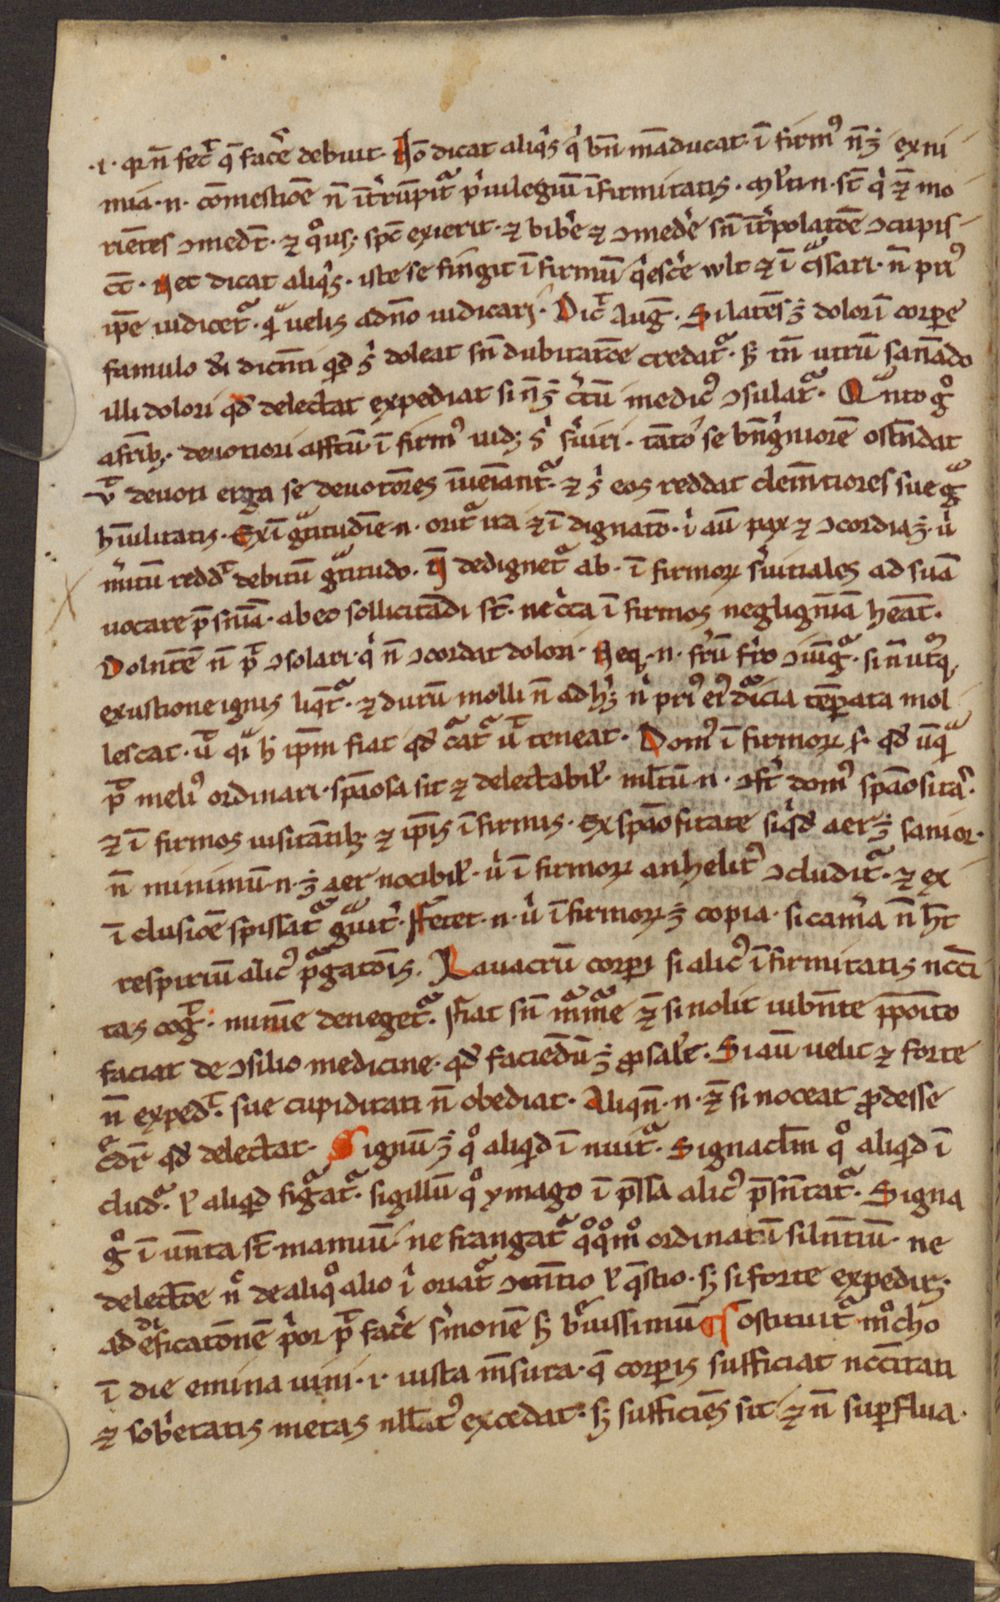 .i. qr n̄ fec̄ q̄ facē debuit. Nō dicat aliqͥs qͥ bn̄ māducat. ī firmꝰ nȝ ex ni
mia .n. cōmestiōe n̄ īt̄rūpitᷣ pͥuilegiū īfirmitatis. ml̓ti .n. st̄ qͥ ⁊ mo
riētes ꝯmedt̄. ⁊ qͦusꝫ spc̄ exierit. ⁊ bibe̓ ⁊ ꝯmede̓ sn̄ īt̓polatōe ꝯcupis
ct̄. Nec dicat aliqͥs. iste se fingit ī firmū qͥesce̓ wlt ⁊ ī cͣssari. n̄ priꝰ
ip̄e iudicetᷣ. qͣ uelis ad n̄o iudicari. Dic̄ Auḡ. Si latēs ꝫ dolor ī corpe
famulo di dicn̄ti qd̓ sͥ doleat sn̄ dubitatōe credatᷣ. sꝫ tn̄ utrū sanādo
illi dolori qd̓ delectat expediat si n̄ ꝫ c̓tū medicꝰ ꝯsulatᷣ. Qͣnto gͦ
a fr̄ibꝫ. deuotiori affctū ī firmꝰ uidꝫ sͥ s̓uiri. tāto se bn̄gͥniorē ostn̄dat
ut̄ deuoti erga se deuotōres īueīantᷣ. ⁊ sͥ eos reddat clemn̄tiores sue gͣ
hūilitatis. Ex ī gͣtitudīe .n. oritᷣ ira ⁊ ī dignatō. iͥ aū pax ⁊ ꝯcordia ꝫ. uͥ
m̓itū redd̄ debitū gͣtitudo. N̄ dedignetᷣ ab. ī firmoꝝ s̓uitiales ad suā
uocare p̄sn̄iā. ab eo sollicitādi st̄. ne cͥca ī firmos neglign̄iā heāt.
Dolntē n̄ p̄t ꝯsolari. qͥ n̄ ꝯcordat dolori. Neqꝫ .n. fr̄ū fr̄o ꝯīūgᷣ. si n̄ utͦqꝫ
exustione ignis liq̄tᷣ. ⁊ durū molli n̄ ad hꝫ n̄ priꝰ eiꝰ dͥicia tēpata mol
lescat. ut̄ qͥ h̄ ip̄m fiat qd̓ c̄atᷣ ut̄ teneat. Domꝰ ī firmoꝝ s. qd̓ ūqͣ
p̄t meliꝰ ordinari. spāosa sit ⁊ delectabil̓. ml̄tū .n. ꝯft̄ domꝰ spāositas̓.
⁊ ī firmos uisitātibꝫ ⁊ ip̄is ī firmis. Ex spāositate siqͥd̓ aer ꝫ sanior.
n̄ minimū .n. ꝫ aer nocibil̓. uͥ ī firmoꝝ anhelitꝰ ꝯcluditᷣ. ⁊ ex
ī clusiōe spissatᷣ gͣuitᷣ. Fetet .n. uͥ ī firmoꝝ ꝫ copia. si cam̓a n̄ ht̄
respiriū alicꝰ p̄gatōis. Lauacrū corpi si alicꝰ ī firmitatis ncc̄i
tas cog̓. numīe denegetᷣ. Fiat sn̄ mᷓmͣe ⁊ si nolit iubn̄te pp̄oito
faciat de ꝯsilio medicine. qd̓ faciedū ꝫ ꝓ sal̓e. Si aū uelit ⁊ forte
n̄ exped̄t. sue cupiditati n̄ obediat. Aliqn̄ .n. ⁊ si noceat ꝓdesse
cͤdr̄ qd̓ delectat. Signū ꝫ qͦ aliqid ī nuitᷣ. Signacl̄m qͦ aliqid ī
cludᷣ. ł aliqid figᷣatᷣ. sigillū qͦ ymago ī p̄ssa alicꝰ p̄sn̄tatᷣ. Signa
gͦ ī un̄ta st̄ manuū. ne frangatᷣ qͦqͦmͦ ordinatū siln̄tiū. ne
delectōe n̄ͨ de aliqͦ alio iͥ oriatᷣ ꝯtn̄tio ł q̄stio. sꝫ si forte expedit.
ad edificatōnē pͥor p̄t face̓ s̓monē sꝫ bͥuissimū Ꝯstituitᷣ mͦcho
ī die emina uini .i. iusta m̄sura. q̄ corpis sufficiat ncc̄itati
⁊ sob̓etatis metas nll̄atꝰ excedat. sꝫ sufficiēs sit ⁊ n̄ suꝑflua.